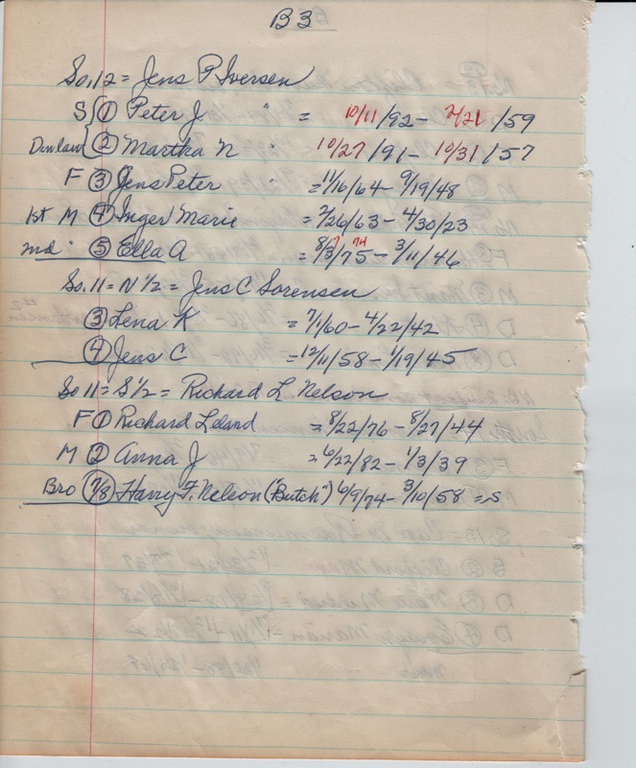 B3
So. 1/2 = Jens P Iversen
S ① Peter J " = 10/11/92 - 2/21/59
Dinlaw ② Martha N " 10/27/91 - 10/31/57
F ③ Jens Peter " = 11/16/64 - 9/19/48
1st M ④ Inger Marie = 2/26/63 - 4/30/23
" ⑤ Ella A = 8/3/75 - 3/11/46
7 74
So. 11 = N 1/2 = Jens C Sorensen
③ Lena K = 7/1/60 - 4/22/42
④ Jens C = 12/11/58 - 1/19/45
So 11 = S 1/2 = Richard L Nelson
F ① Richard Leland = 8/22/76 - 8/27/44
M ② Anna J = 6/22/82 - 1/3/39
Bro 7/8 Harry F. Nelson ("Butch") 6/9/74 - 3/10/58 = S